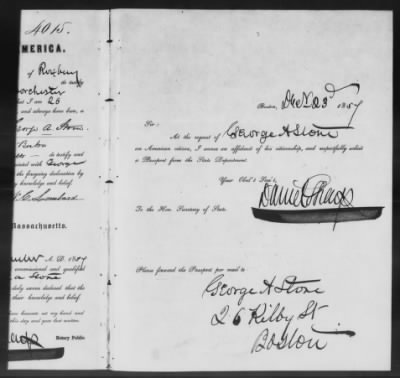 4015.
MERICA.
of Roxbury
to testify
orchester
at I am 28
and always have been, a
George A. Stone
Boston
to testify and
ainted with George
the foregoing declaration by
my knowledge and belief.
W. C. Lombard
Massachusetts.
A. D. 1857
commissioned and qualified
a Stone
duly sworn declared that the
their knowledge and belief.
have hereunto set my hand and
this day and year last written.
Notary Public.
Boston, Dec 23d 1857
Sir:
At the request of George A Stone
an American citizen, I annex an affidavit of his citizenship, and respectfully solicit
a Passport from the State Department.
Your Obed't Serv't,
Daniel Sharp
To the Hon. Secretary of State.
Please forward the Passport per mail to
George A Stone
26 Kilby St.
Boston